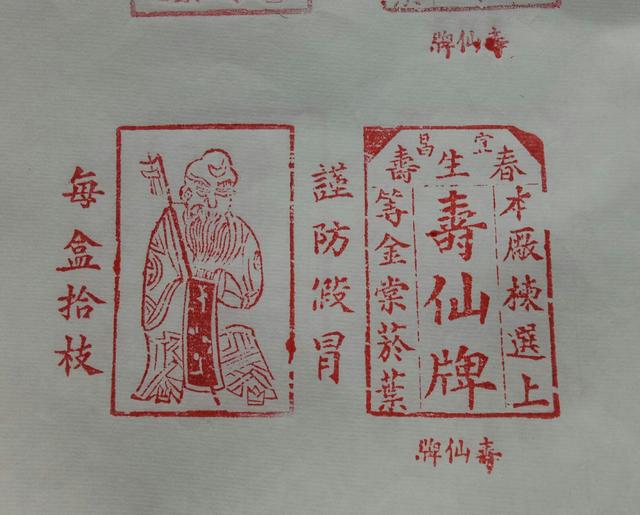 壽仙牌
宜昌
春生壽
本廠揀選上
壽仙牌
等金棠菸葉
謹防假冒
每盒拾枝
壽仙牌